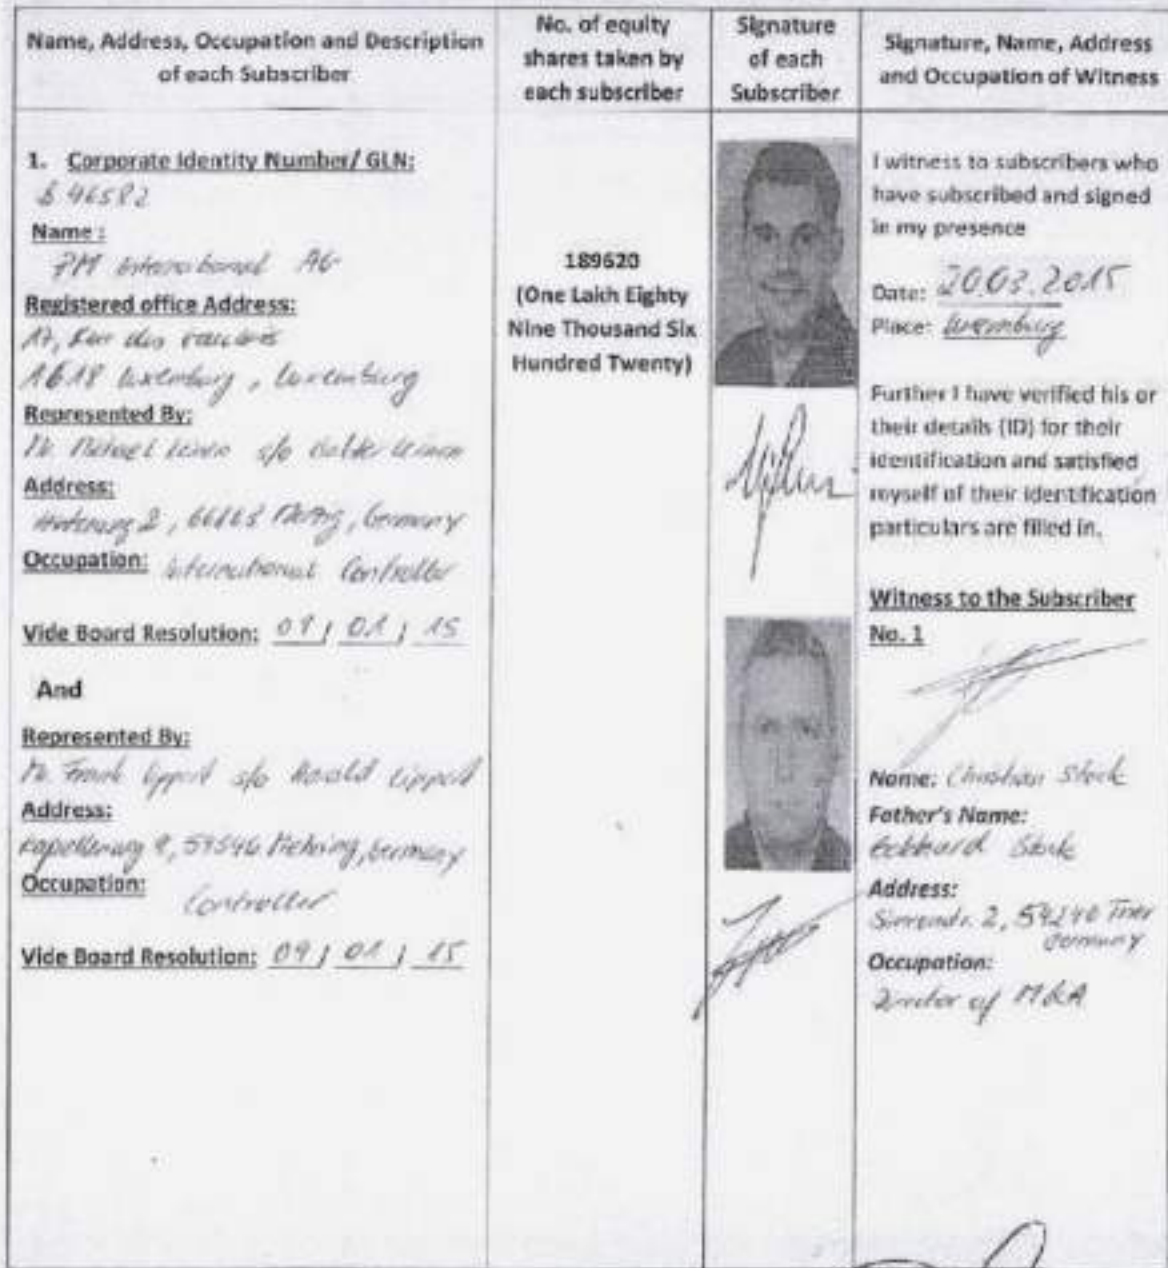 Name, Address, Occupation and Description
of each Subscriber
No. of equity
shares taken by
each subscriber
Signature
of each
Subscriber
Signature, Name, Address
and Occupation of Witness
1. Corporate Identity Number/ GLN:
B 46582
Name :
PM International AG
Registered office Address:
17, Rue des
1618 Luxemburg, Luxemburg
Represented By:
Mr. Michael s/o
Address:
2, 66663 Merzig, Germany
Occupation: International Controller
Vide Board Resolution: 09 / 01 / 15
And
Represented By:
Mr. Frank Lippert s/o Harald Lippert
Address:
Kapellenweg 9, Mehring, Germany
Occupation:
Controller
Vide Board Resolution: 09 / 01 / 15
189620
(One Lakh Eighty
Nine Thousand Six
Hundred Twenty)
I witness to subscribers who
have subscribed and signed
in my presence
Date: 20.03.2015
Place: Luxemburg
Further I have verified his or
their details (ID) for their
identification and satisfied
myself of their identification
particulars are filled in.
Witness to the Subscriber
No. 1
Name: Christian Stock
Father's Name:
Eckhard Stock
Address:
2, 54290 Trier
Germany
Occupation:
Director of M&A